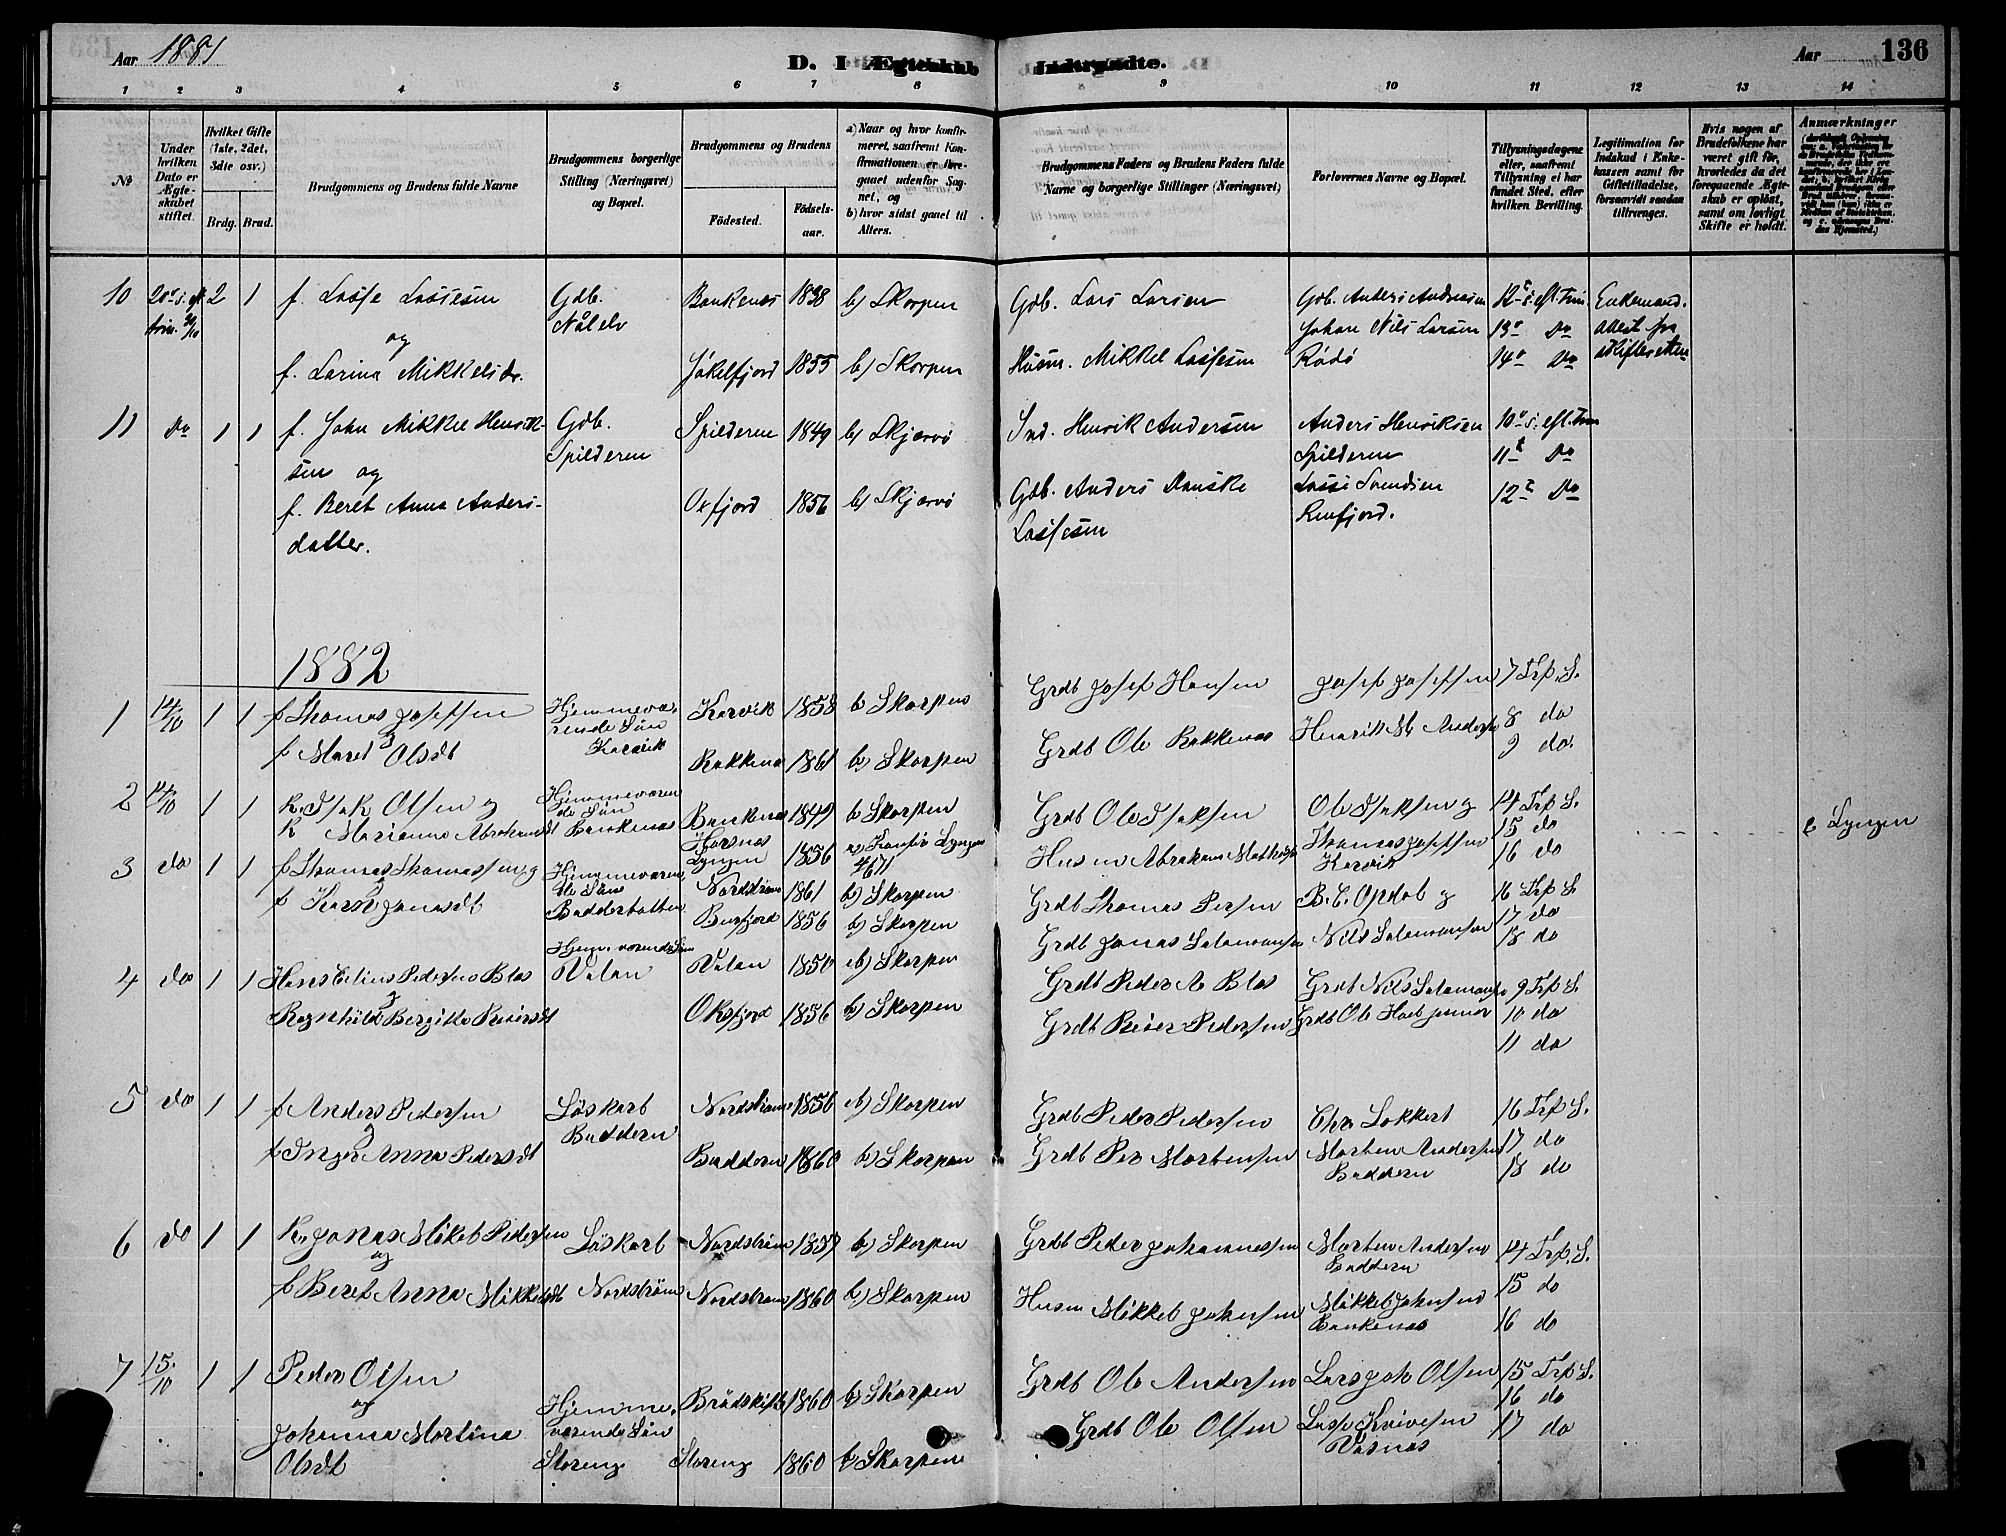 Aar 1881
D. I Ægteskab Indtrædte.
Aar 136
1 2 3 4 5 6 7 8 9 10 11 12 13 14
No
Under hvilken Dato er Ægteskabet stiftet.
Hvilket Gifte (1ste, 2det, 3die osv.)
Brdg. Brud.
Brudgommens og Brudens fulde Navne
Brudgommens borgerlige Stilling (Næringsvei) og Bopæl.
Brudgommens og Brudens
Fødested. Fødsels-aar.
a) Naar og hvor konfirmeret, saafremt Konfirmationen er foregaaet udenfor Sognet, og
b) hvor sidst gaaet til Alters.
Brudgommens Faders og Brudens Faders fulde Navne og borgerlige Stillinger (Næringsvei)
Forlovernes Navne og Bopæl.
Tillysningsdagene eller, saafremt Tillysning ei har fundet Sted, efter hvilken Bevilling.
Legitimation for Indskud i Enkekassen samt for Giftetilladelse, forsaavidt saadan tiltrænges.
Hvis nogen af Brudefolkene har været gift før, hvorledes da det foregaaende Ægteskab er opløst, samt om lovligt Skifte er holdt.
Anmærkninger
10 20de s. eft. trin. 30/10 2 1 f. Lasse Lassesen Gdb. Nålelv Bankenes 1838 b) Skorpen Gdb. Lars Larsen Gdb. Anders Andersen 12te s. eft. Trin. Enkemand.
og Johan Nils Larsen 13de Do Attest fra
f. Larina Mikkelsdr. Jøkelfjord 1855 b) Skorpen Husm. Mikkel Lassesen Rødø 14de Do skifteretten
11 Do 1 1 f. John Mikkel Henrik- Gdb. Spilderen 1849 b) Skjærvø Ind. Henrik Andersen Anders Henriksen 10de s. eft. Trin
sen og Spilderen Spilderen 11te Do
f. Beret Anna Anders- Oxfjord 1856 b) Skjærvø Gdb. Anders Danske Lasse Svendsen 12te Do
datter. Lassesen Renfjord.
1882
1 14/10 1 1 f Thomas Josefsen Hjemmevæ- Korvik 1858 b Skorpen Grdb Josef Hansen Josef Josefsen 7 Trf. S.
rende Søn 8 do
f Maret Olsdt Korvik Bakkenes 1861 b) Skorpen Grdb Ole Bakkenes Henrik M. Andersen 9 do.
2 14/10 1 1 K. Isak Olsen og Hjemmeværen Bankenes 1849 b Skorpen Grdb Ole Isaksen Ole Isaksen og 14 Trf. S.
K Marianna Abrahamsdt de Søn Bankenes Lyngen 1856 Lyngen Husm Abraham Thomas Josefsen Korvik 15 do c Lyngen
16 do
3 do 1 1 f Thomas Thomassen og Hjemmeværen Nordstrøm 1861 b) Skorpen Grdb Thomas Persen B. C. Opdal og 16 Trf S.
f Karn Jonasdt de Søn Badderbotten Burfjord 1856 b) Skorpen Grdb Jonas Salamonsen Nils Salamonsen 17 do
18 do
4 do 1 1 Hans Eilius Pedersen Blas Hjem. værende Søn Valan Valan 1850 b) Skorpen Grdb Peder A Blas Grdb Nils Salamonsen 9 Trf S.
Ragnhild Bergitte Reiersdt Oksfjord 1856 b) Skorpen Grdb Reier Pedersen Grdb Ole Hoel junior 10 do
11 do
5 do 1 1 f Anders Pedersen Løskarl Nordstrøm 1856 b) Skorpen Grdb Peder Pedersen Chr Lokkert 16 Trf S.
og Baddern Morten Andersen 17 do
f Inger Anna Pedersdt Baddern 1860 b) Skorpen Grdb Per Mortensen Baddern 18 do
6 do 1 1 K. Jonas Mikel Pedersen Løskarl Nordstrøm 1857 b) Skorpen Grdb Peder Johannessen Morten Andersen 14 Trf. S.
og Baddern
f Beret Anna Mikkelsdt Nordstrøm Nordstrøm 1860 b) Skorpen Husm Mikkel Johnsen Mikkel Johnsen 15 do
Bankenes 16 do
7 15/10 1 1 Peder Olsen Hjemme- 1860 b) Skorpen Grdb Ole Andersen Lars Joh Olsen 15 Trf. S.
og værende Søn 16 do
Johanna Martina Storeng Storeng 1860 b) Skorpen Grdb Ole Olsen 17 do
Olsdt